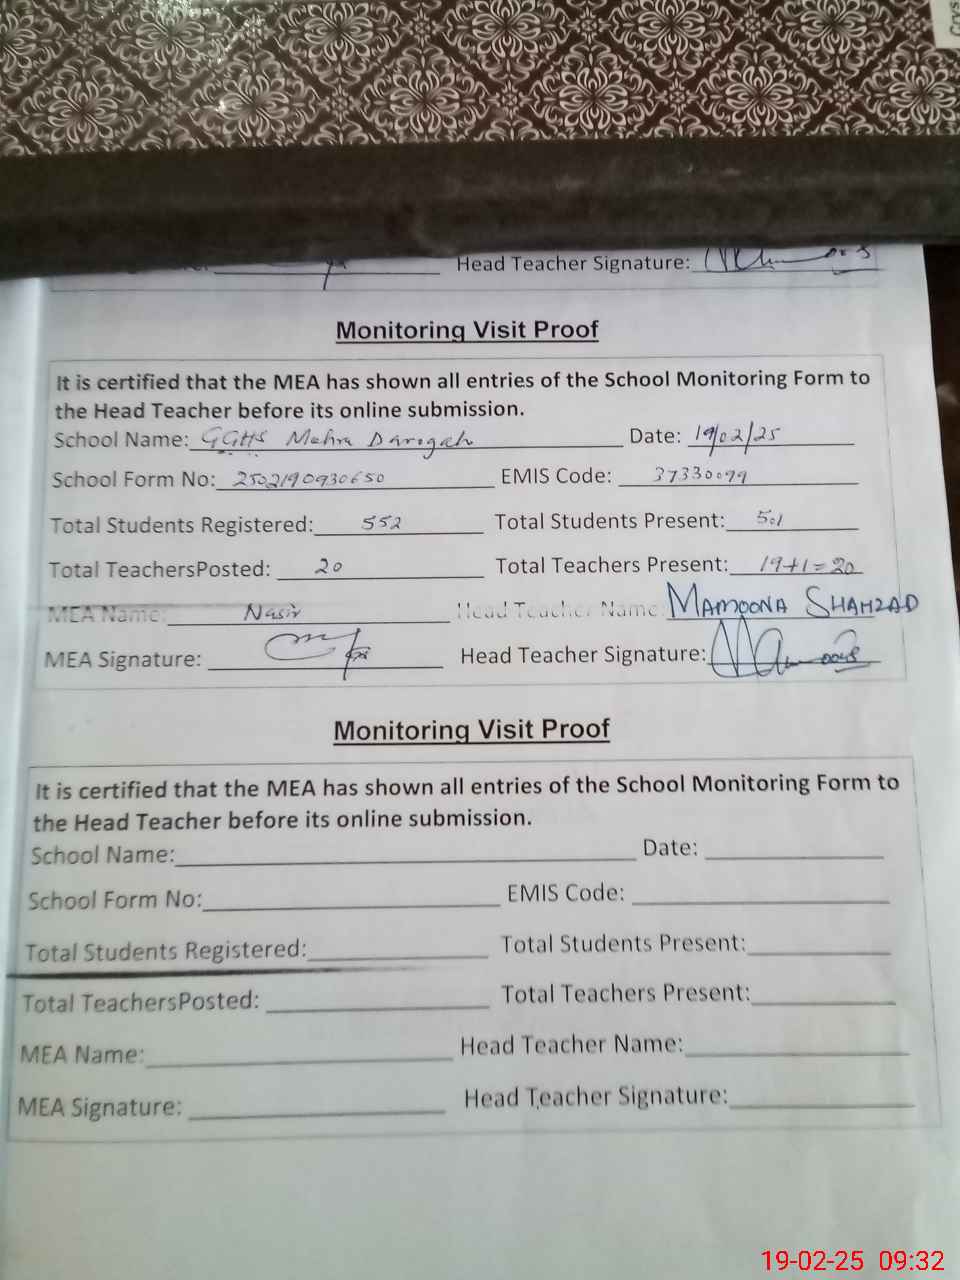 Head Teacher Signature:
Monitoring Visit Proof
It is certified that the MEA has shown all entries of the School Monitoring Form to
the Head Teacher before its online submission.
School Name: GGHS Mehra Darogah Date: 19/02/25
School Form No: 2502190930650 EMIS Code: 37330099
Total Students Registered: 552 Total Students Present: 501
Total TeachersPosted: 20 Total Teachers Present: 19+1=20
MEA Name: Nasir Head Teacher Name: MAMOONA SHAHZAD
MEA Signature: Head Teacher Signature:
Monitoring Visit Proof
It is certified that the MEA has shown all entries of the School Monitoring Form to
the Head Teacher before its online submission.
School Name: Date:
School Form No: EMIS Code:
Total Students Registered: Total Students Present:
Total TeachersPosted: Total Teachers Present:
MEA Name: Head Teacher Name:
MEA Signature: Head Teacher Signature:
19-02-25 09:32